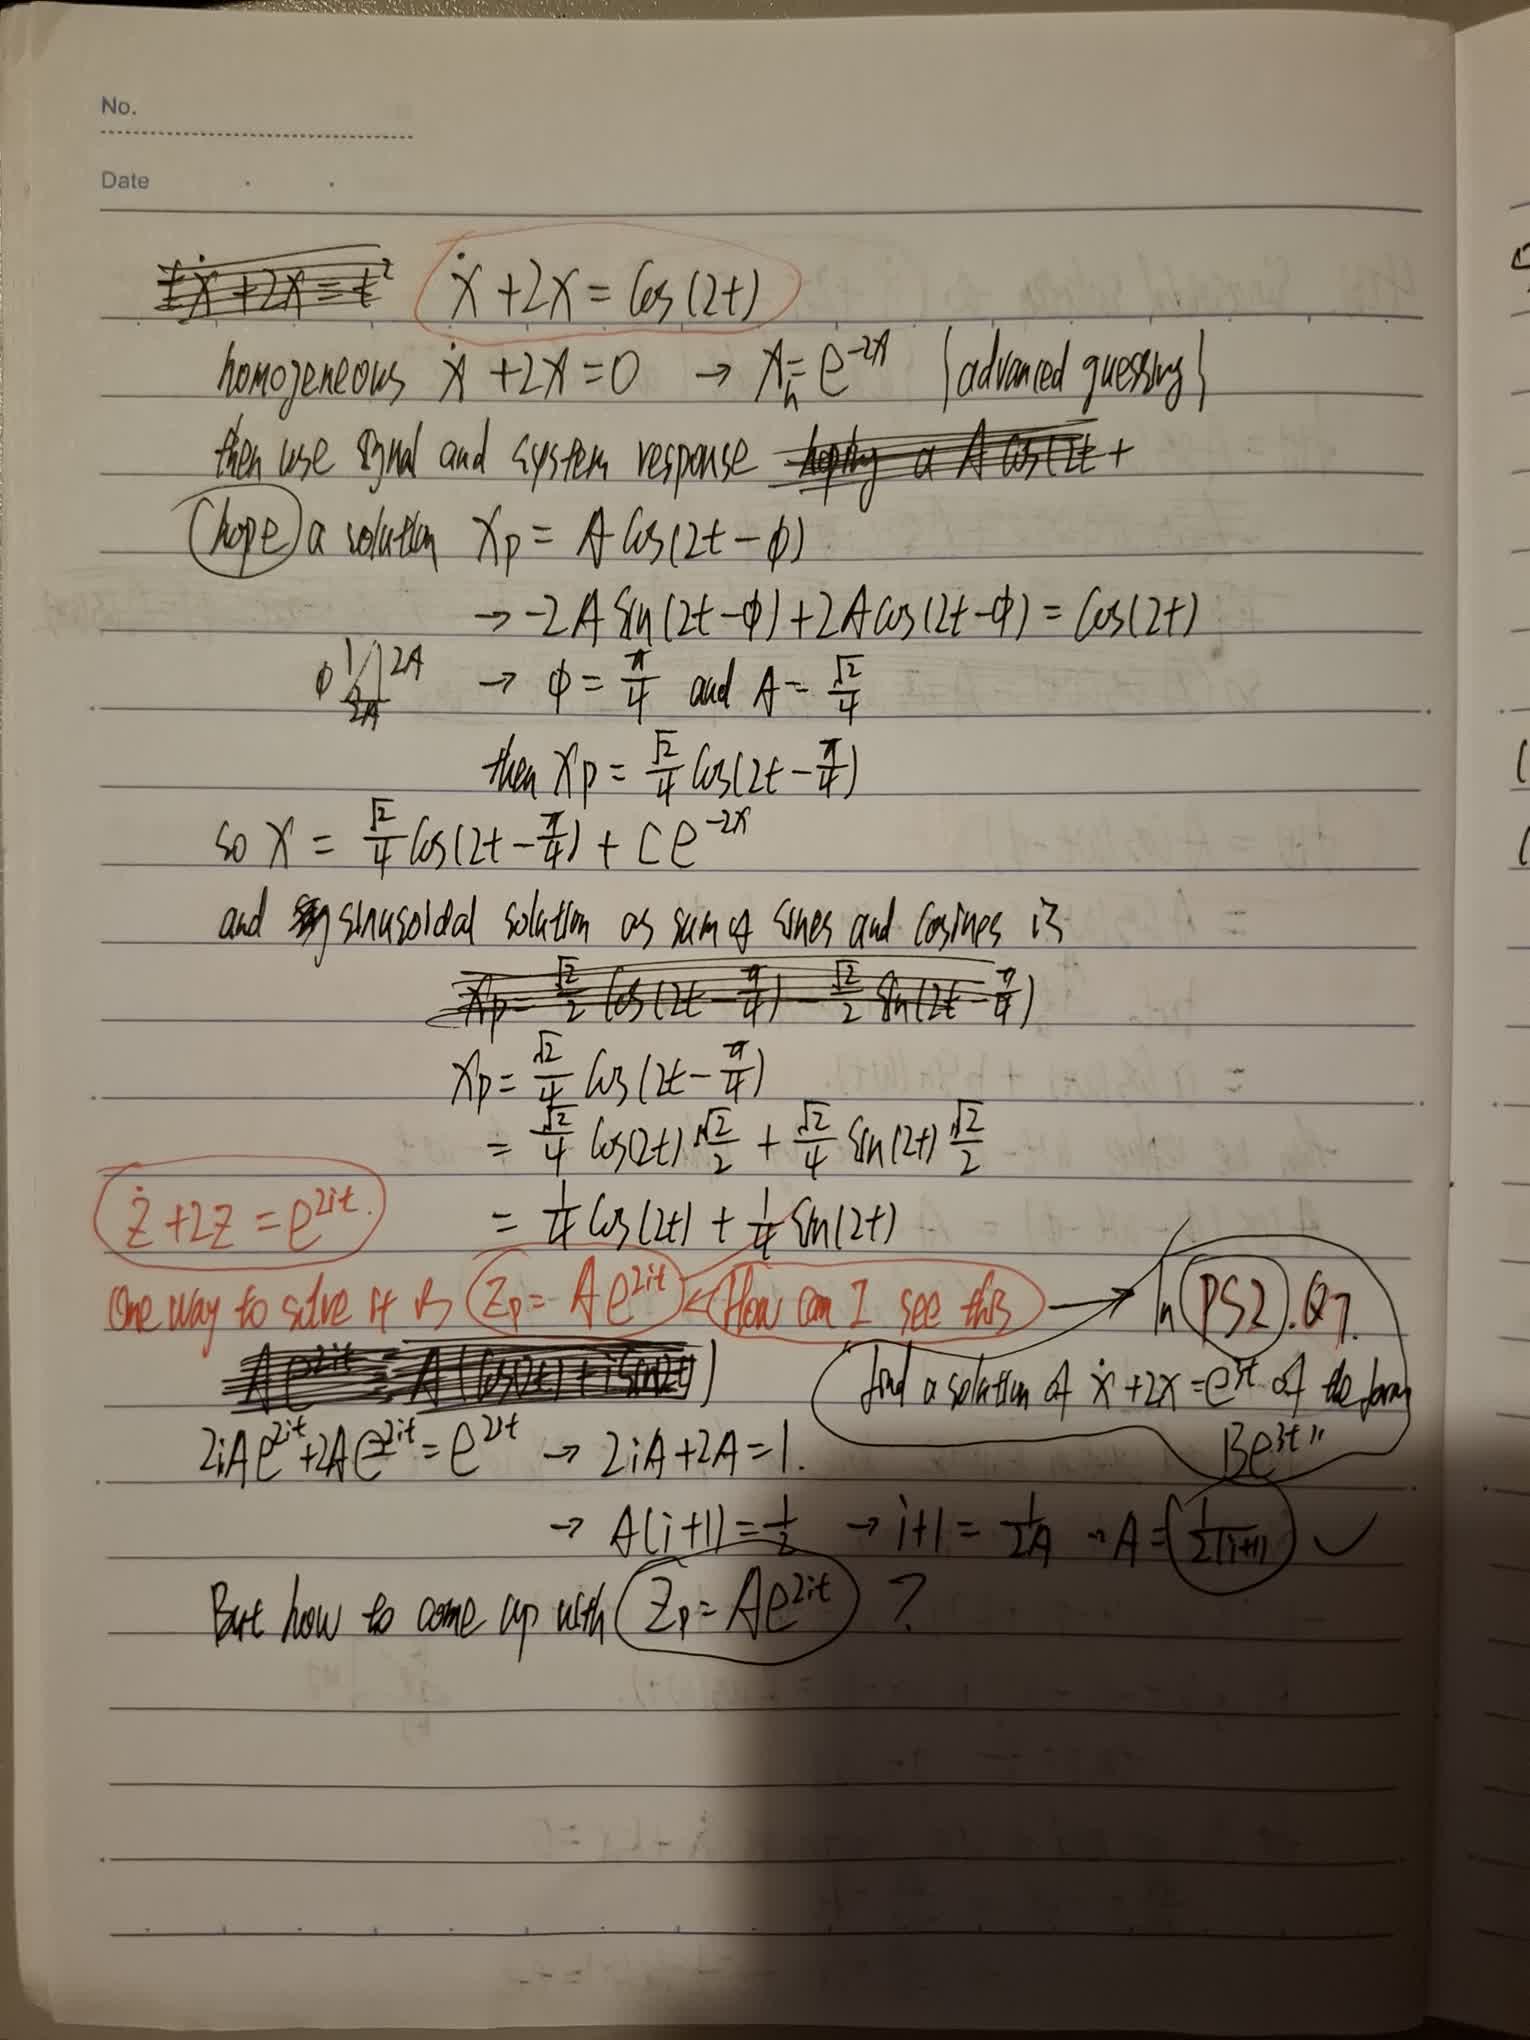 No.
Date
ẋ + 2x = Cos(2t)
homogeneous ẋ + 2x = 0 → x_h = e^{-2x} (advanced guessing)
then use signal and system response
hope a solution x_p = A Cos(2t - ϕ)
→ -2A Sin(2t - ϕ) + 2A Cos(2t - ϕ) = Cos(2t)
ϕ 1 2A 2A → ϕ = π/4 and A = √2/4
then x_p = √2/4 Cos(2t - π/4)
so x = √2/4 Cos(2t - π/4) + C e^{-2x}
and sinusoidal solution as sum of sines and cosines is
x_p = √2/4 Cos(2t - π/4)
= √2/4 Cos(2t) √2/2 + √2/4 Sin(2t) √2/2
ż + 2z = e^{2it}.
= 1/4 Cos(2t) + 1/4 Sin(2t)
One way to solve it is z_p = A e^{2it} ← How can I see this → In PS2.Q7.
find a solution of ẋ + 2x = e^{3t} of the form
Be^{3t}"
2iAe^{2it} + 2Ae^{2it} = e^{2it} → 2iA + 2A = 1.
→ A(i+1) = 1/2 → i+1 = 1/2A → A = 1/2(i+1) ✓
But how to come up with z_p = Ae^{2it} ?